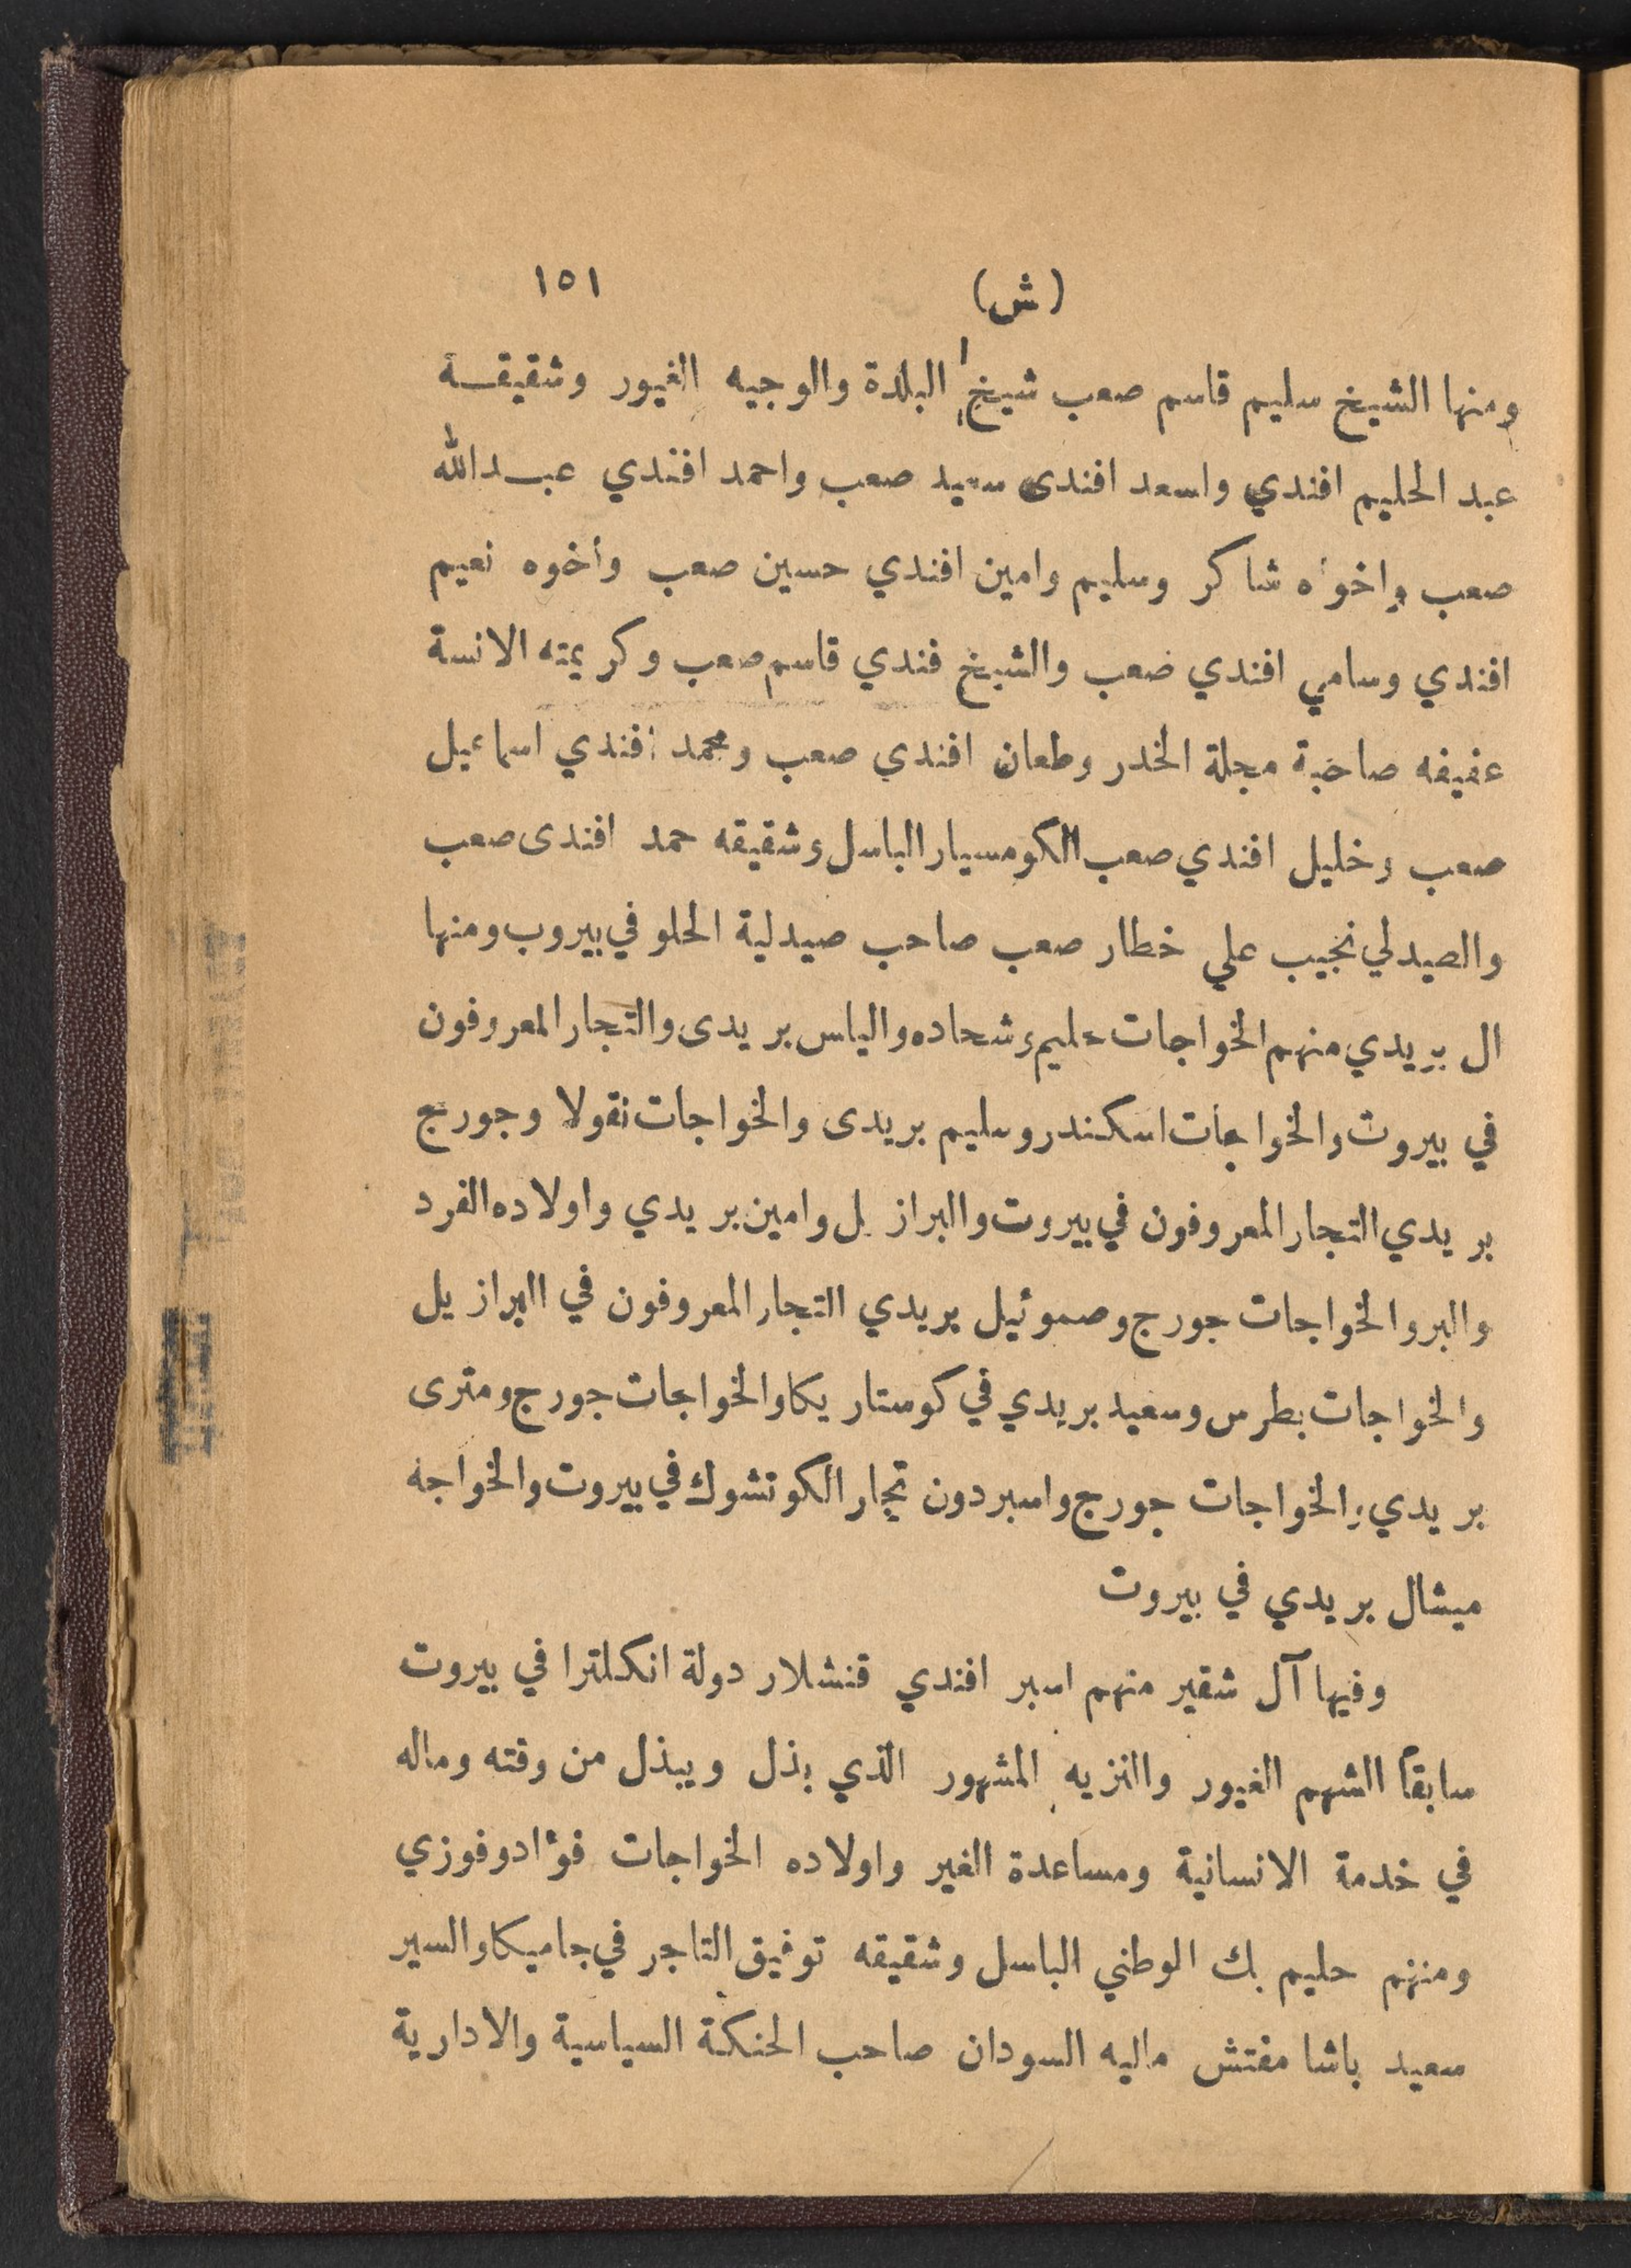 (ش) ١٥١
ومنها الشيخ سليم قاسم صعب شيخ البلدة والوجيه الغيور وشقيقة
عبد الحليم افندي واسعد افندى سعيد صعب واحمد افندي عبدالله
صعب واخوه شاكر وسليم وامين افندي حسين صعب وأخوه نعيم
افندي وسامي افندي ضعب والشيخ فندي قاسم صعب وكريمته الانسة
عفيفه صاحبة مجلة الخدر وطعان افندي صعب ومحمد افندي اسماعيل
صعب وخليل افندي صعب الكومسيار الباسل وشقيقه حمد افندى صعب
والصيدلي نجيب علي خطار صعب صاحب صيدلية الحلو في بيروب ومنها
ال بريدي منهم الخواجات حليم وشحاده والياس بريدى والتجار المعروفون
في بيروت والخواجات اسكندر وسليم بريدى والخواجات نقولا وجورج
بريدي التجار المعروفون في بيروت والبرازيل وامين بريدي واولاده الفرد
والبر والخواجات جورج وصموئيل بريدي التجار المعروفون في البرازيل
والخواجات بطرس وسعيد بريدي في كوستاريكا والخواجات جورج ومترى
بريدي والخواجات جورج واسبردون تجار الكوتشوك في بيروت والخواجه
ميشال بريدي في بيروت
وفيها آل شقير منهم اسبر افندي قنشلار دولة انكلترا في بيروت
سابقاً الشهم الغيور والنزيه المشهور الذي بذل ويبذل من وقته وماله
في خدمة الانسانية ومساعدة الغير واولاده الخواجات فؤاد وفوزي
ومنهم حليم بك الوطني الباسل وشقيقه توفيق التاجر في جاميكا والسير
سعيد باشا مفتش ماليه السودان صاحب الحنكة السياسية والادارية